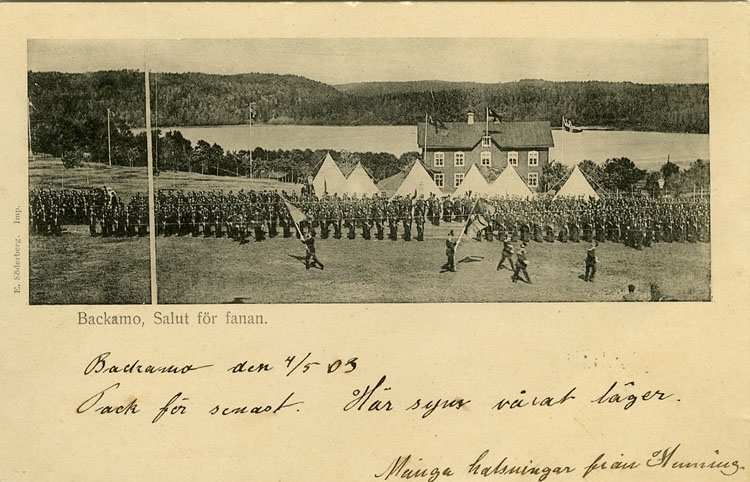 E. Söderberg. Imp.
Backamo, Salut för fanan.
Backamo den 4/5 03
Tack för senast. Här syns vårat läger.
Många halsningar från Henning.